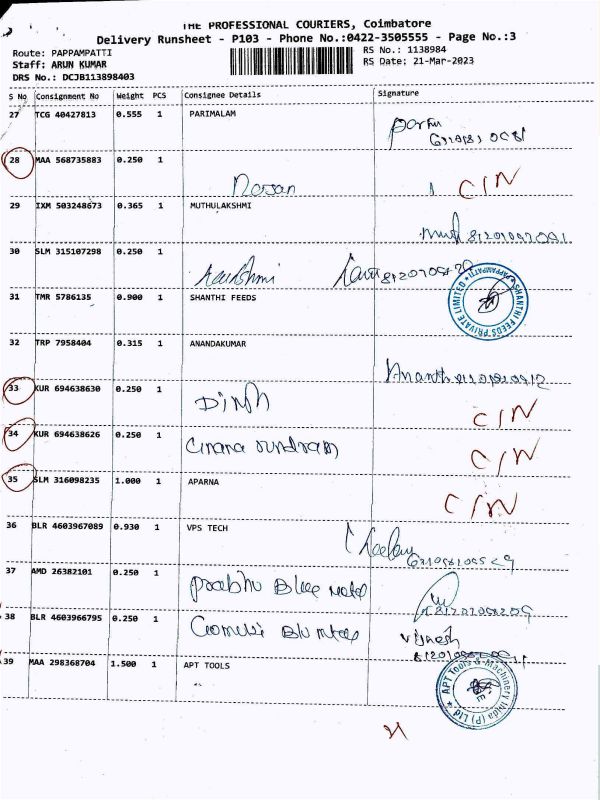 THE PROFESSIONAL COURIERS, Coimbatore
Delivery Runsheet - P103 - Phone No.:0422-3505555 - Page No.:3
Route: PAPPAMPATTI
RS No.: 1138984
Staff: ARUN KUMAR
RS Date: 21-Mar-2023
DRS No.: DCJB113898403
S No Consignment No Weight PCS Consignee Details Signature
27 TCG 40427813 0.555 1 PARIMALAM
28 MAA 568735883 0.250 1
CIN
29 IXM 503248673 0.365 1 MUTHULAKSHMI
30 SLM 315107298 0.250 1
31 TMR 5786135 0.900 1 SHANTHI FEEDS
SHANTHI FEEDS PRIVATE LIMITED * PAPPAMPATTI *
32 TRP 7958404 0.315 1 ANANDAKUMAR
33 KUR 694638630 0.250 1
CIN
34 KUR 694638626 0.250 1
CIN
35 SLM 316098235 1.000 1 APARNA
CIN
36 BLR 4603967089 0.930 1 VPS TECH
37 AMD 26382101 0.250 1
Prabhu Blue
38 BLR 4603966795 0.250 1
Vignesh
39 MAA 298368704 1.500 1 APT TOOLS
APT Tools & Machinery India (P) Ltd